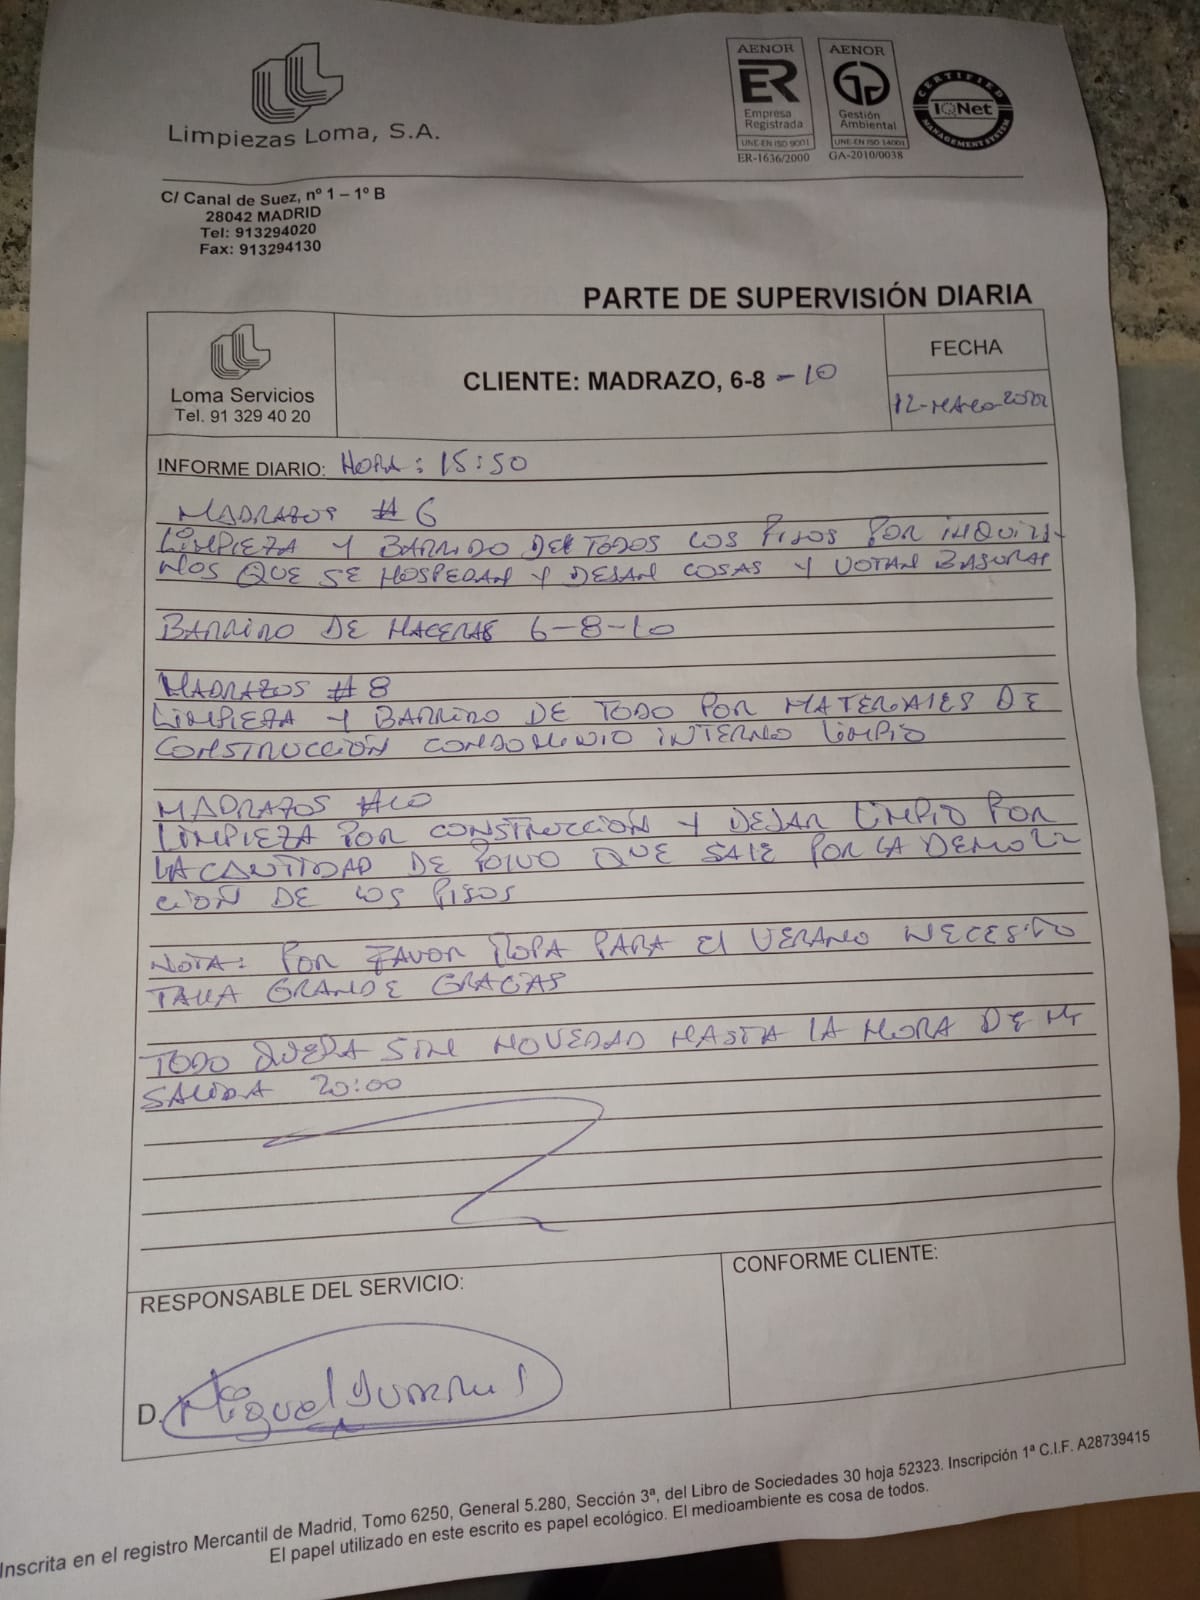 Limpiezas Loma, S.A.
AENOR
ER
Empresa
Registrada
UNE-EN ISO 9001
ER-1636/2000
AENOR
Gestión
Ambiental
UNE-EN ISO 14001
GA-2010/0038
CERTIFIED
IQNet
MANAGEMENT SYSTEM
C/ Canal de Suez, nº 1 – 1º B
28042 MADRID
Tel: 913294020
Fax: 913294130
PARTE DE SUPERVISIÓN DIARIA
Loma Servicios
Tel. 91 329 40 20
CLIENTE: MADRAZO, 6-8 -10
FECHA
12-MAYO-2022
INFORME DIARIO: HORA: 15:50
MADRAZOS #6
LIMPIEZA Y BARRIDO DE TODOS LOS PISOS POR INQUILI-
NOS QUE SE HOSPEDAN Y DEJAN COSAS Y VOTAN BASURAS
BARRIDO DE HACERAS 6-8-10
MADRAZOS #8
LIMPIEZA Y BARRIDO DE TODO POR MATERIALES DE
CONSTRUCCIÓN CONDOMINIO INTERNO LIMPIO
MADRAZOS #10
LIMPIEZA POR CONSTRUCCIÓN Y DEJAR LIMPIO POR
LA CANTIDAD DE POLVO QUE SALE POR LA DEMOLI
CIÓN DE LOS PISOS
NOTA: POR FAVOR ROPA PARA El VERANO NECESITO
TALLA GRANDE GRACIAS
TODO QUEDA SIN NOVEDAD HASTA LA HORA DE MI
SALIDA 20:00
RESPONSABLE DEL SERVICIO:
CONFORME CLIENTE:
D. Miguel
Inscrita en el registro Mercantil de Madrid, Tomo 6250, General 5.280, Sección 3ª, del Libro de Sociedades 30 hoja 52323. Inscripción 1ª C.I.F. A28739415
El papel utilizado en este escrito es papel ecológico. El medioambiente es cosa de todos.